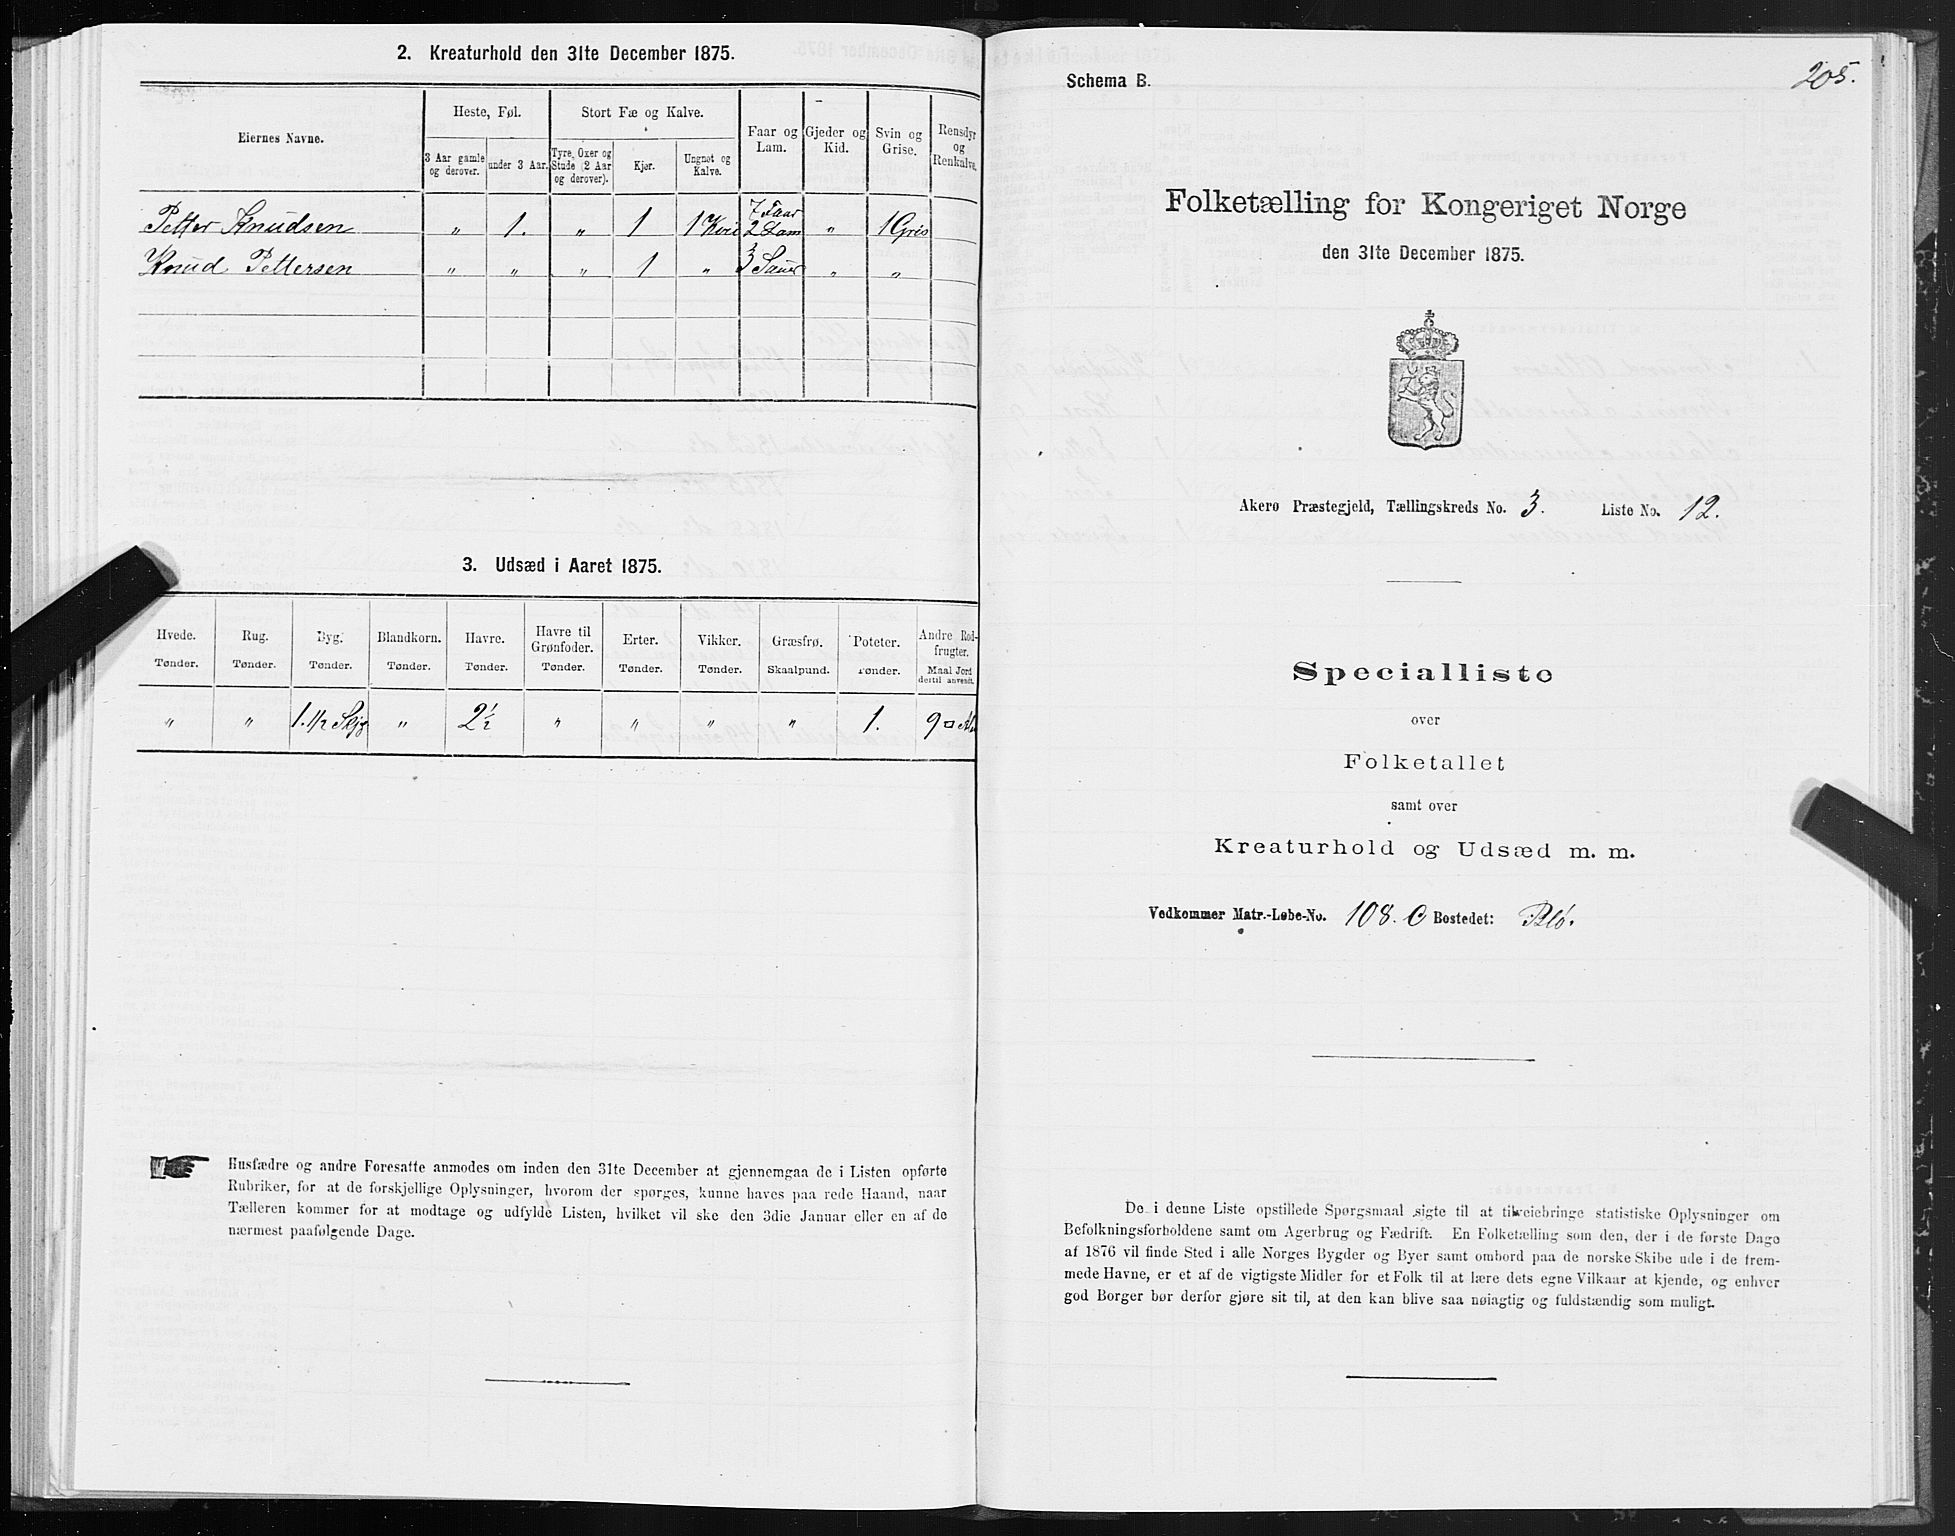 2. Kreaturhold den 31te December 1875.
Eiernes Navne.
Heste, Føl.
Stort Fæ og Kalve.
Faar og Lam.
Gjeder og Kid.
Svin og Grise.
Rensdyr og Renkalve.
3 Aar gamle og derover.
under 3 Aar.
Tyre, Oxer og Stude (2 Aar og derover).
Kjør.
Ungnøt og Kalve.
Petter Knudsen " 1. " 1 1 Kvie 7 Faar 2 Lam " 1 Gris
Knud Pettersen " " " 1 " 3 Sauer " "
3. Udsæd i Aaret 1875.
Hvede. Rug. Byg. Blandkorn. Havre. Havre til Grønfoder. Erter. Vikker. Græsfrø. Poteter. Andre Rodfrugter.
Tønder. Tønder. Tønder. Tønder. Tønder. Tønder. Tønder. Tønder. Skaalpund. Tønder. Maal Jord dertil anvendt.
" " 1. 1/2 Skjp " 2 1/2 " " " " 1. 9 □
Husfædre og andre Foresatte anmodes om inden den 31te December at gjennemgaa de i Listen opførte
Rubriker, for at de forskjellige Oplysninger, hvorom der spørges, kunne haves paa rede Haand, naar
Tælleren kommer for at modtage og udfylde Listen, hvilket vil ske den 3die Januar eller en af de
nærmest paafølgende Dage.
205.
Schema B.
Folketælling for Kongeriget Norge
den 31te December 1875.
Akerø Præstegjeld, Tællingskreds No. 3. Liste No. 12.
Specialliste
over
Folketallet
samt over
Kreaturhold og Udsæd m. m.
Vedkommer Matr.-Løbe-No. 108. C Bostedet: Blø.
De i denne Liste opstillede Spørgsmaal sigte til at tilveiebringe statistiske Oplysninger om
Befolkningsforholdene samt om Agerbrug og Fædrift. En Folketælling som den, der i de første Dage
af 1876 vil finde Sted i alle Norges Bygder og Byer samt ombord paa de norske Skibe ude i de frem-
mede Havne, er et af de vigtigste Midler for et Folk til at lære dets egne Vilkaar at kjende, og enhver
god Borger bør derfor gjøre sit til, at den kan blive saa nøiagtig og fuldstændig som muligt.